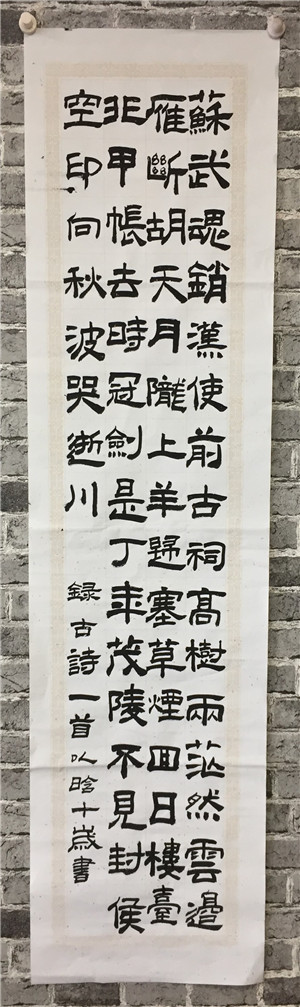 蘇武魂銷漢使前古祠高樹兩茫然雲邊
雁斷胡天月隴上羊歸塞草煙回日樓臺
非甲帳去時冠劍是丁年茂陵不見封侯
空印向秋波哭逝川
錄古詩一首以十歲書